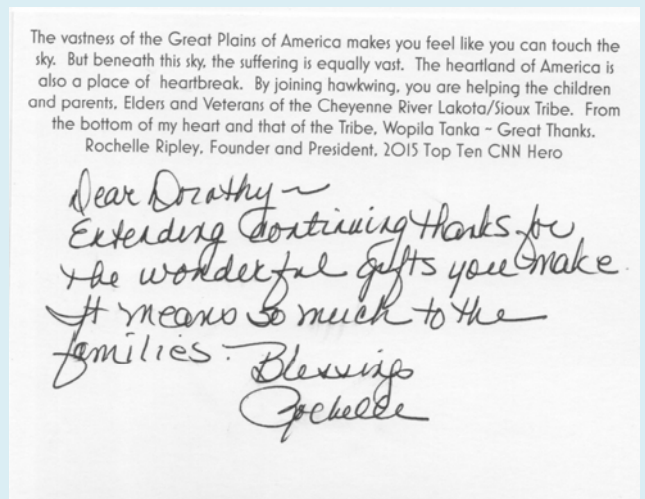 The vastness of the Great Plains of America makes you feel like you can touch the
sky. But beneath this sky, the suffering is equally vast. The heartland of America is
also a place of heartbreak. By joining hawkwing, you are helping the children
and parents, Elders and Veterans of the Cheyenne River Lakota/Sioux Tribe. From
the bottom of my heart and that of the Tribe, Wopila Tanka – Great Thanks.
Rochelle Ripley, Founder and President, 2015 Top Ten CNN Hero
Dear Dorathy~
Extending continuing thanks for
the wonderful gifts you make.
It means so much to the
families. Blessings
Rochelle